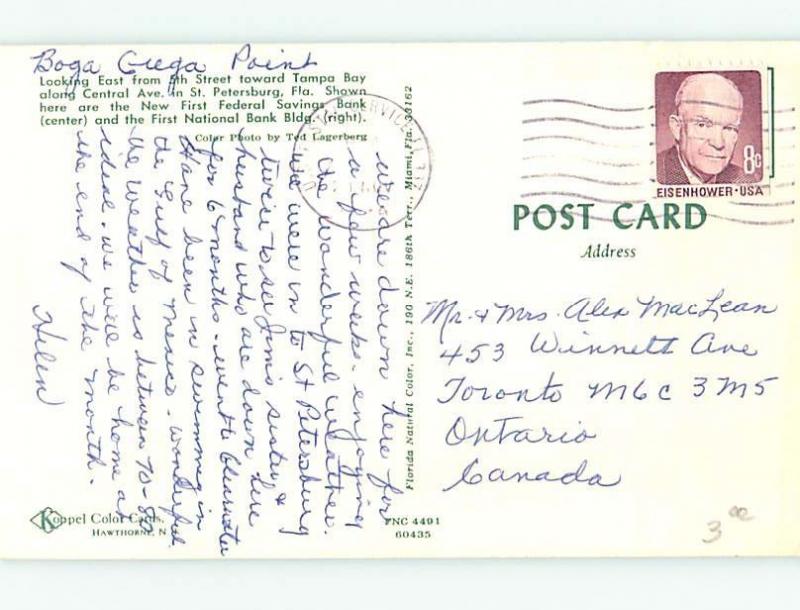 Boga Ciega Point
Looking East from 5th Street toward Tampa Bay
along Central Ave. in St. Petersburg, Fla. Shown
here are the New First Federal Savings Bank
(center) and the First National Bank Bldg. (right).
Color Photo by Ted Lagerberg
we are down here for
a few weeks - enjoying
the wonderful weather.
we were in to St Petersburg
twice to see Jim's sister &
husband who are down here
for 6 months - went to Clearwater
Have been in swimming in
the Gulf of Mexico - wonderful
the weather is between 70-80
ideal. we will be home at
the end of the month.
Helen
Koppel Color Cards.
HAWTHORNE, N
Florida Natural Color, Inc., 190 N.E. 186th Terr., Miami, Fla. 33162
FNC 4491
60435
8c
EISENHOWER·USA
POST CARD
Address
Mr. & Mrs. Alex MacLean
453 Winnett Ave
Toronto M6C 3M5
Ontario
Canada
3 00